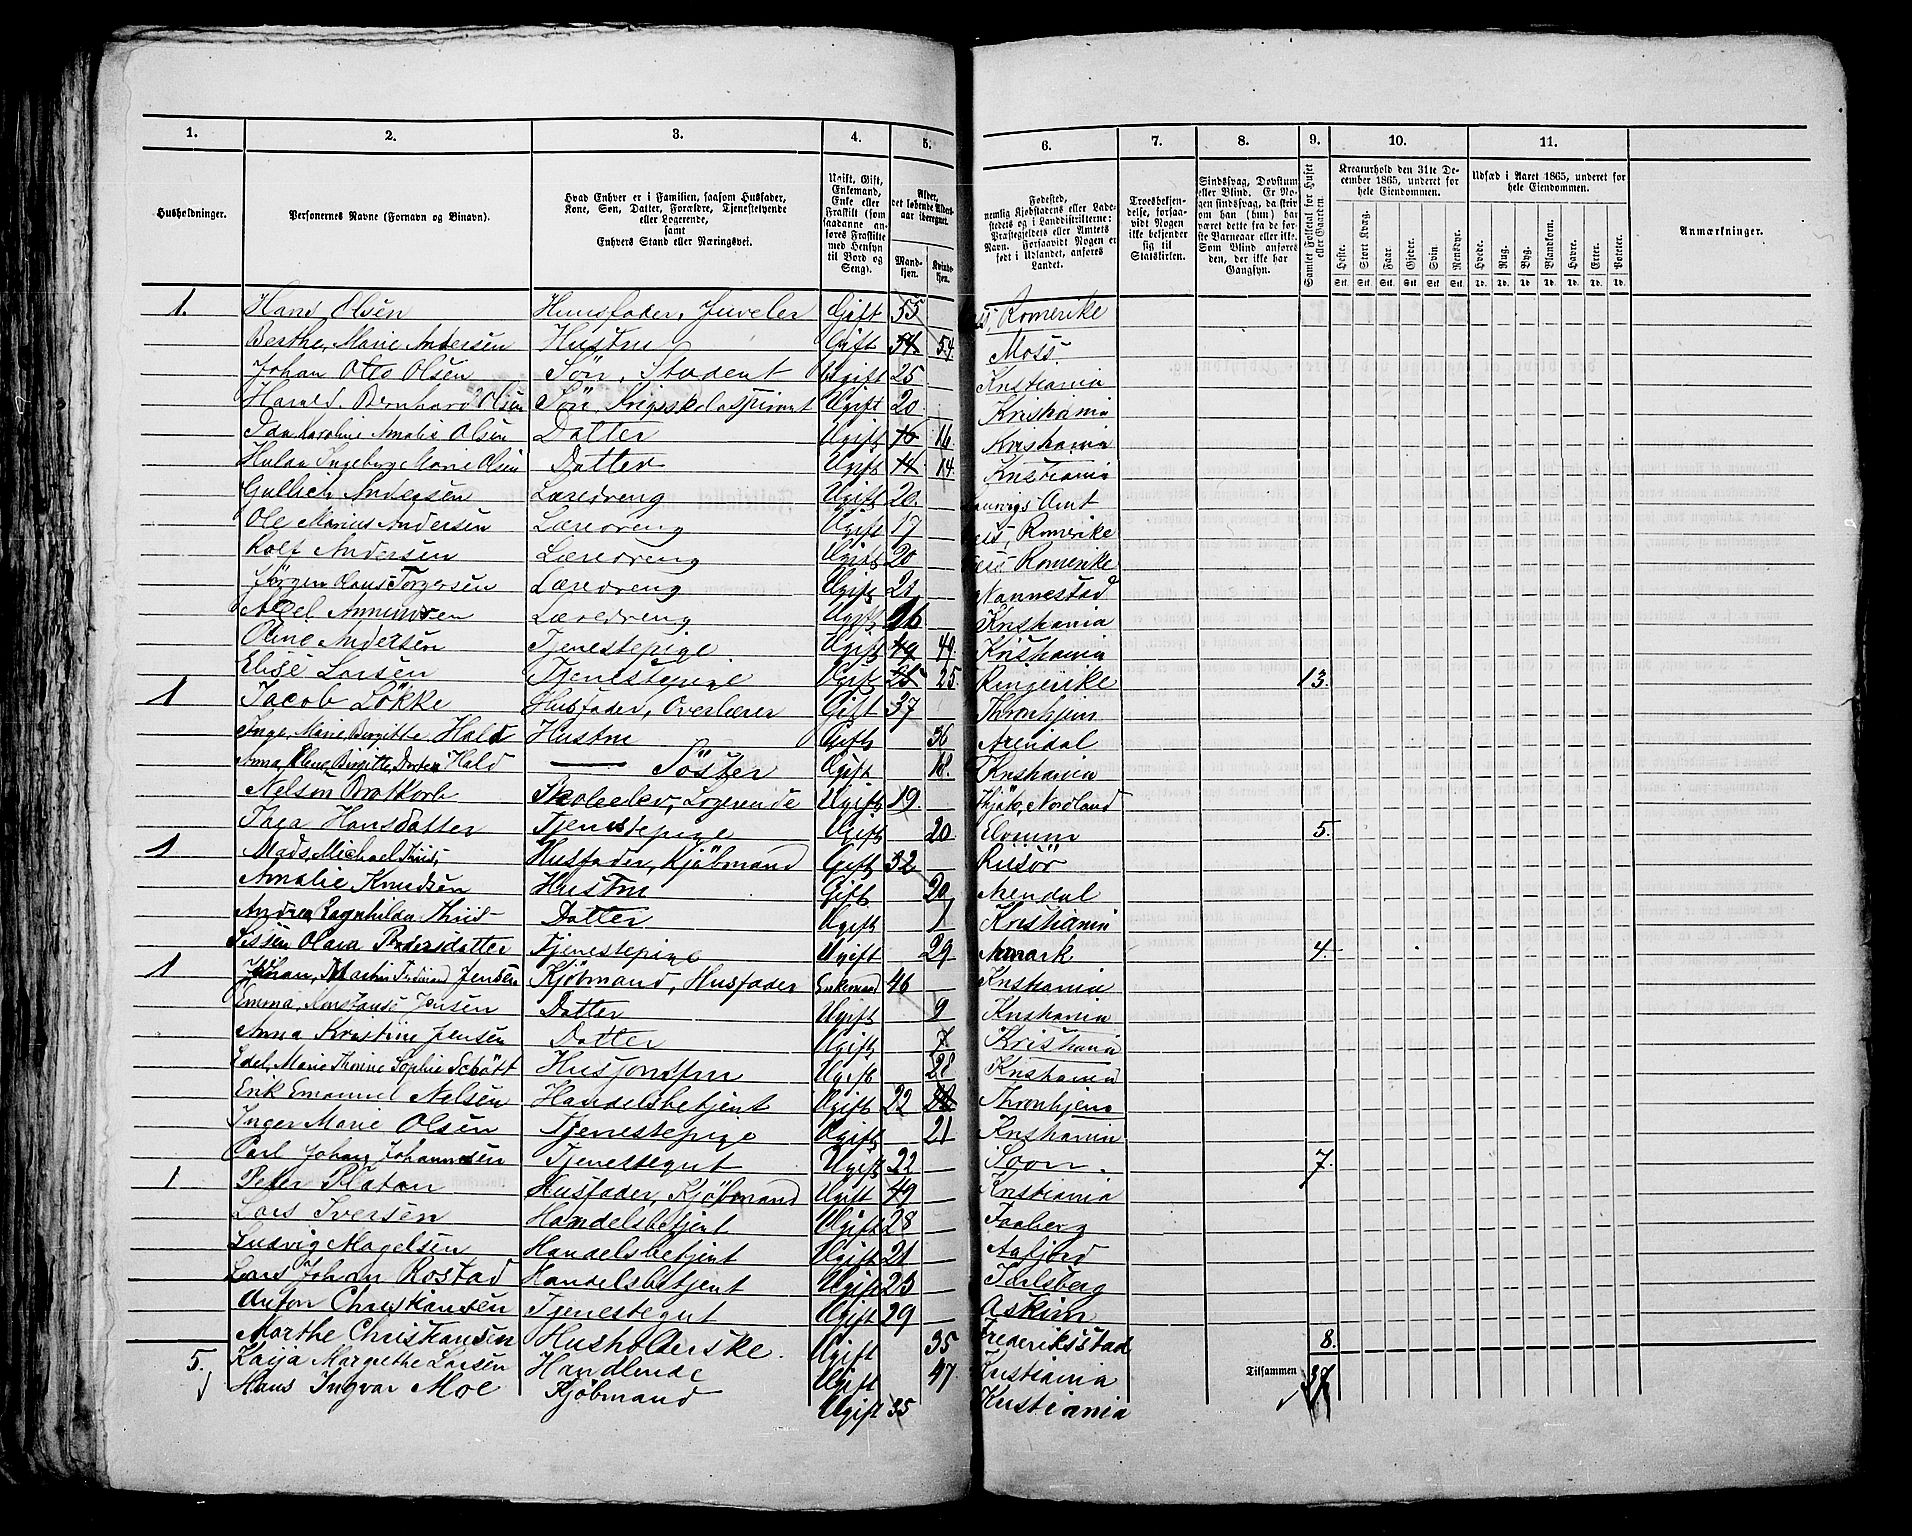 1. 2. 3. 4. 5. 6. 7. 8. 9. 10. 11.
Husholdninger.
Personernes Navne (Fornavn og Binavn).
Hvad Enhver er i Familien, saasom Husfader, Kone, Søn, Datter, Forældre, Tjenestetyende eller Logerende, samt Enhvers Stand eller Næringsvei.
Ugift, Gift, Enkemand, Enke eller Fraskilt (som saadanne anføres Fraskilte med Hensyn til Bord og Seng).
Alder, det løbende Alders-aar iberegnet.
Mand-kjøn. Kvinde-kjøn.
Fødested, nemlig Kjøbstadens eller Ladestedets og i Landdistrikterne: Præstegjeldets eller Amtets Navn. Forsaavidt Nogen er født i Udlandet, anføres Landet.
Troesbekjendelse, forsaavidt Nogen ikke bekjender sig til Statskirken.
Sindssvag, Døvstum eller Blind. Er Nogen sindssvag, da skrives om han (hun) har været dette fra de første Barneaar eller ikke. Som Blind anføres den, der ikke har Gangsyn.
Samlet Folketal for Huset eller Gaarden.
Kreaturhold den 31te December 1865, underet for hele Eiendommen.
Heste. Stort Kvæg. Faar. Gjeder. Svin. Rensdyr.
Stk. Stk. Stk. Stk. Stk. Stk.
Udsæd i Aaret 1865, underet for hele Eiendommen.
Hvede. Rug. Byg. Blandkorn. Havre. Erter. Poteter.
Td. Td. Td. Td. Td. Td. Td.
Anmærkninger.
1. Hans Olsen Huusfader, Juveler Gift 55 Romerike
Berthe, Marie Andersen Hustru Gift 54. 54. Moss
Johan Otto Olsen Søn, Student Ugift 25 Kristiania
Harald Bernhard Olsen Søn, Krigsskoleaspirant Ugift 20 Kristiania
Ida Karoline Amalie Olsen Datter Ugift 16 16. Kristiania
Hulda Ingeborg Marie Olsen Datter Ugift 14 14. Kristiania
Andersen Læredreng Ugift 20. Amt
Ole Marius Andersen Læredreng Ugift 17 Romerike
Rolf Andersen Læredreng Ugift 20 Romerike
Jørgen Olaus Torgersen Læredreng Ugift 21 Nannestad
Axel Læredreng Ugift 16 Kristiania
Oline Andersen Tjenestepige Ugift 49 49. Kristiania
Elise Larsen Tjenestepige Ugift 25 25. Ringerike 13.
1 Jacob Løkke Husfader, Overlærer Gift 37 Thronhjem
Inge, Marie, Birgitte Hald Hustru Gift 36 Arendal
Anna Birgitte, Hald — Søster Ugift 18. Kristiania
Nelson Brotkorb Skoleelev, Logerende Ugift 19 Nordland
Thea Hansdatter Tjenestepige Ugift 20 Elverum 5.
1 Mads, Michael Thiis- Husfader, Kjøbmand Gift 32 Risør
Amalie Knudsen Hustru Gift 20 Arendal
Andrea Ragnhilda Thiis- Datter Ugift 1 Kristiania
Olava Pedersdatter Tjenestepige Ugift 29 Aremark 4.
1 Johan, Martin Ferdinand Jensen Kjøbmand, Husfader Enkemand 46 Kristiania
Emma, Konstanse Jensen Datter Ugift 9 Kristiania
Anna Kristine Jensen Datter Ugift 7 Kristiania
Edel, Marie Thorine Sophie Schøtt Husjomfru Ugift 28 Kristiania
Erik Emanuel Nelsen Handelsbetjent Ugift 22 Thronhjem
Inger Marie Olsen Tjenestepige Ugift 21 Kristiania
Carl Johan Johannesen Tjenestegut Ugift 22 Soon. 7.
1 Peter Platou Husfader, Kjøbmand Ugift 49 Kristiania
Lars Iversen Handelsbetjent Ugift 28 Faaberg
Ludvig Magelsen Handelsbetjent Ugift 21 Aafjord
Lars Johan Rostad Handelsbetjent Ugift 23 Jarlsberg
Anton Christiansen Tjenestegut Ugift 29 Askim
Marthe Christiansen Husholderske. Ugift 35 Frederiksstad 8.
5. Kaija Margrethe Larsen Handlende Ugift 47. Kristiania Tilsammen 37
Hans Ingvar Moe Kjøbmand Ugift 35 Kristiania